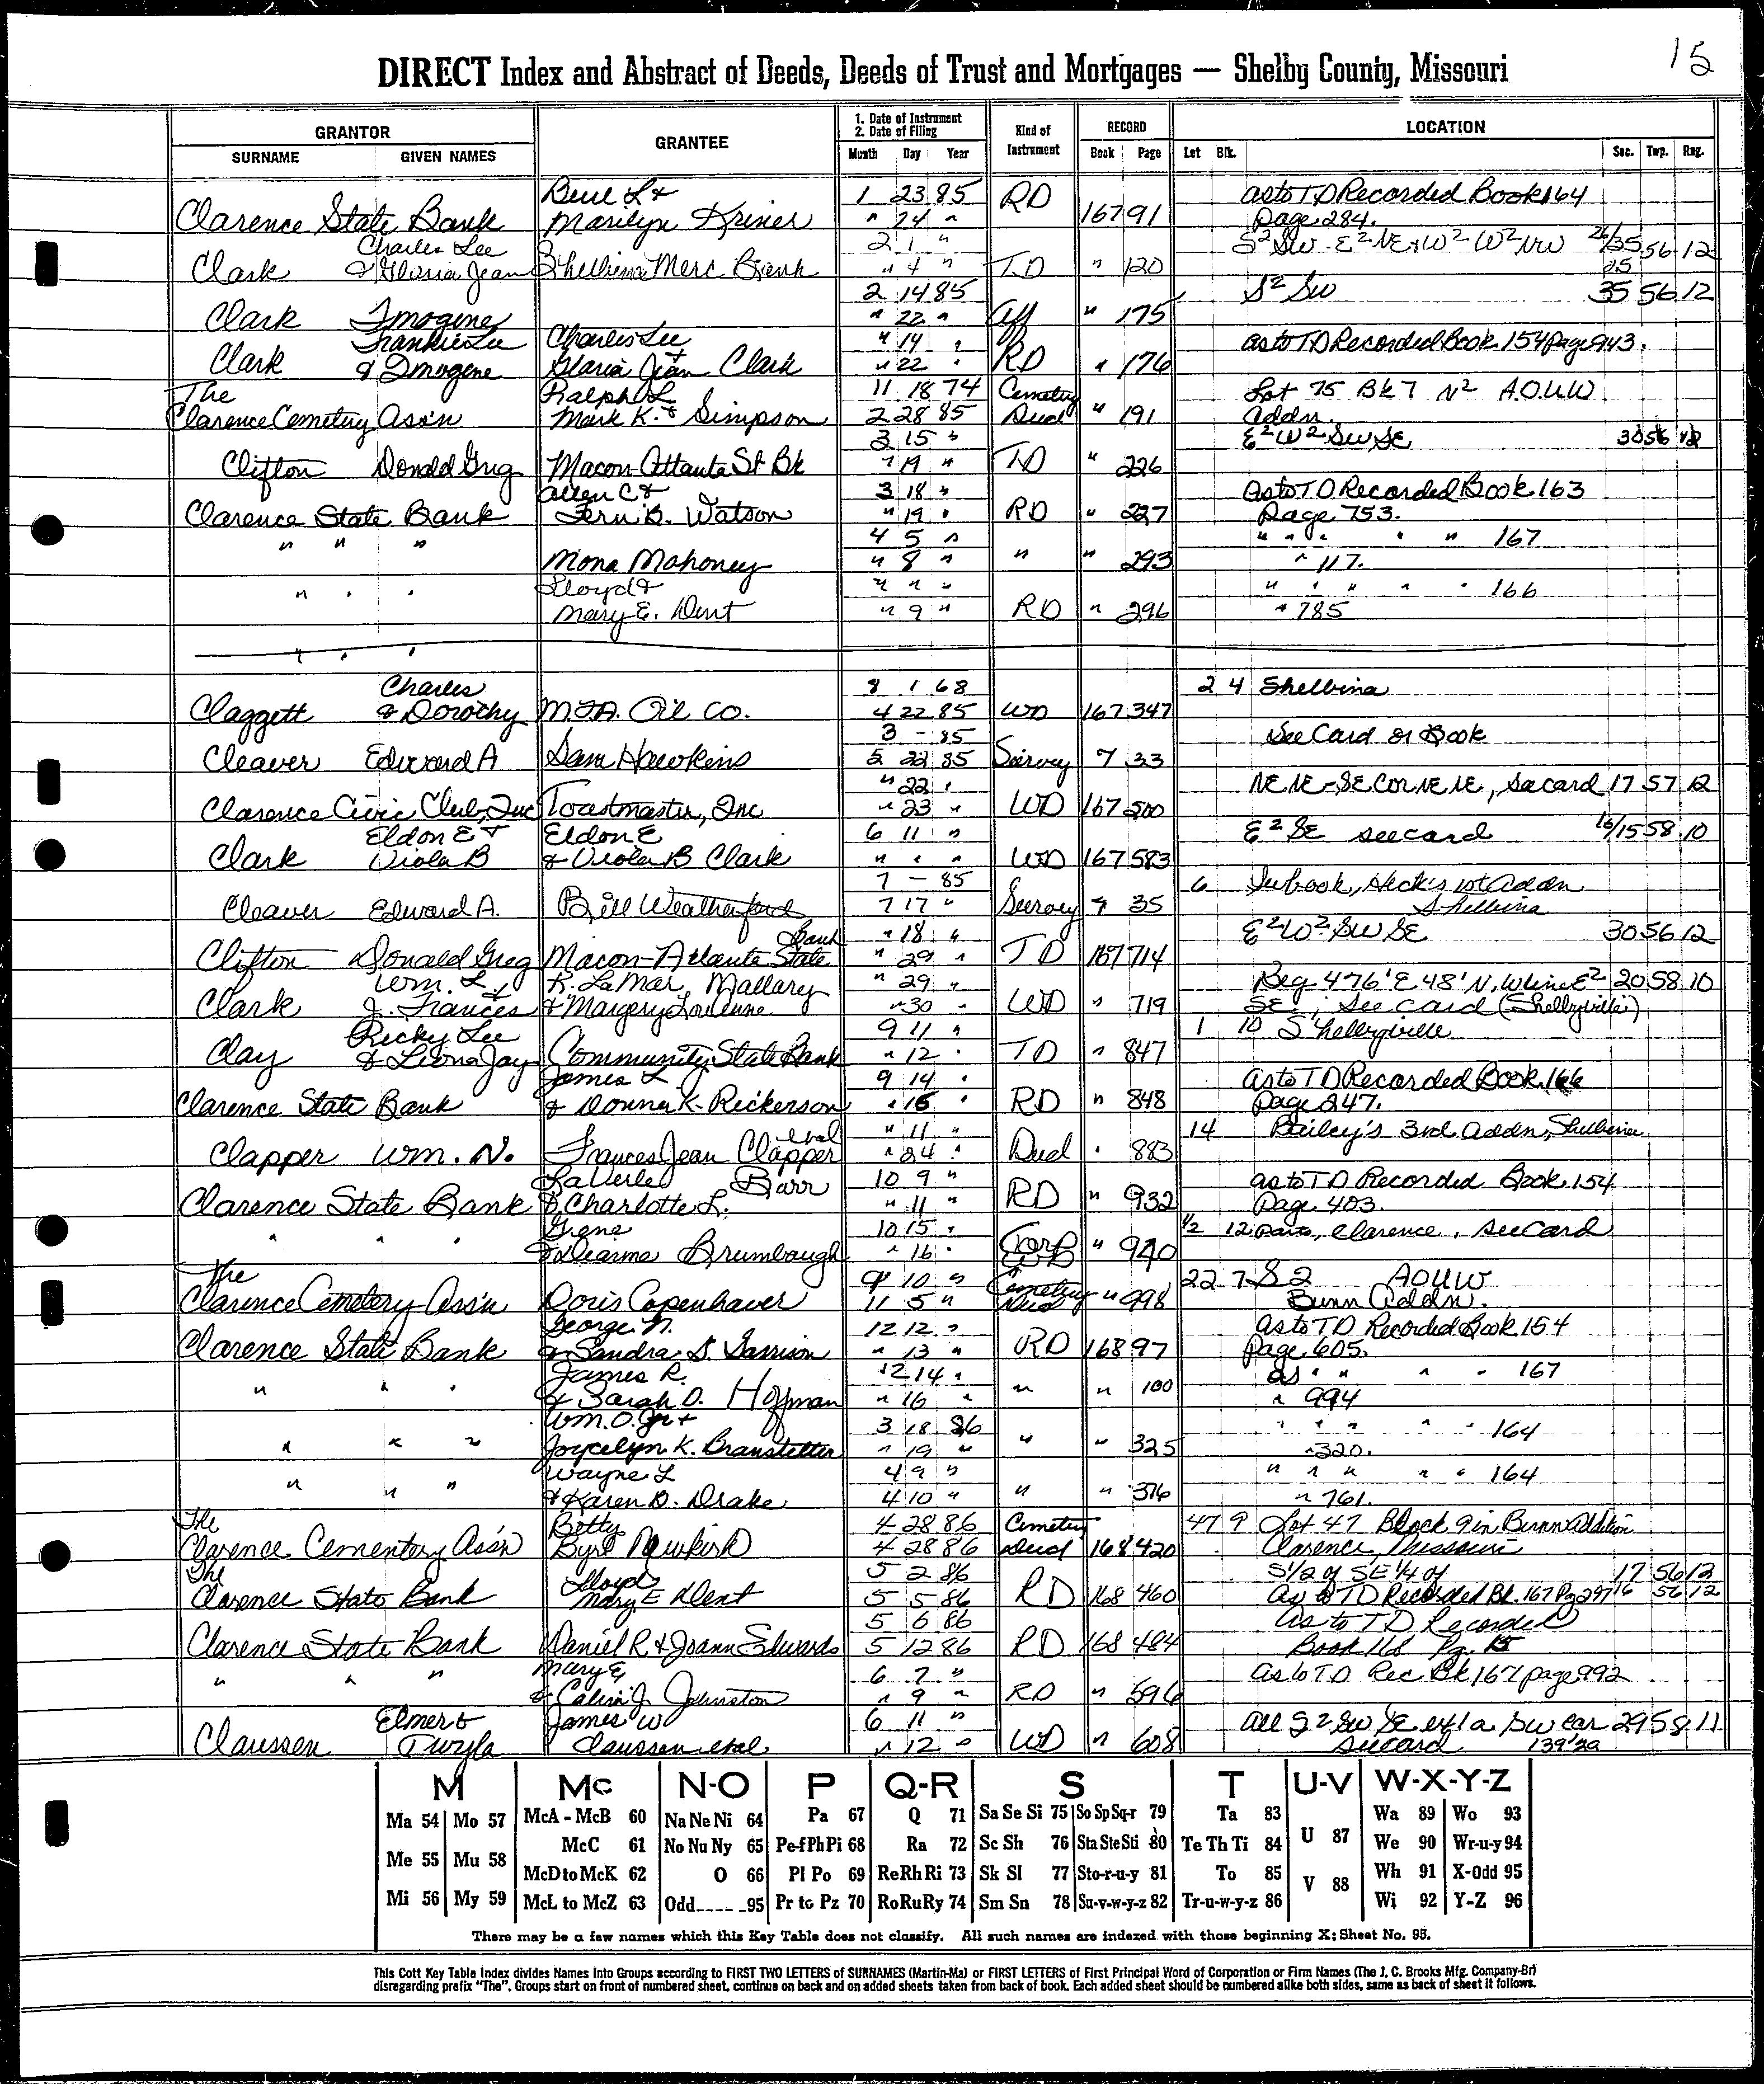 15
DIRECT Index and Abstract of Deeds, Deeds of Trust and Mortgages — Shelby County, Missouri
GRANTOR GRANTEE 1. Date of Instrument 2. Date of Filing Kind of Instrument RECORD LOCATION
SURNAME GIVEN NAMES Month Day Year Book Page Lot Blk. Sec. Twp. Rng.
Beul L & 1 23 85 RD as to TD Recorded Book 164
Clarence State Bank Marilyn Kriner " 24 " 167 91 Page 284.
Charles Lee 2 1 " S² SW - E² NE & W² - W² NW 26/35 56 12
Clark & Gloria Jean Shelbina Merc Bank " 4 " TD " 120 25
2 14 85 S² SW 35 56 12
Clark Imogene " 22 " Aff " 175
Frankie Lee Charles Lee " 14 " as to TD Recorded Book 154 page 943.
Clark & Imogene Gloria Jean Clark " 22 " RD " 176
The Ralph L 11 18 74 Cemetery Lot 75 Bk 7 N² A.O.U.W
Clarence Cemetery Ass'n Mark K. & Simpson 2 28 85 Deed " 191 Addn.
3 15 " E² W² SW SE 30 56 12
Clifton Donald Greg Macon-Atlanta St Bk " 19 " TD " 226
Allen C & 3 18 " As to TD Recorded Book 163
Clarence State Bank Fern B. Watson " 19 " RD " 227 Page 753.
" " " 4 5 " " " " " " 167
Mona Mahoney " 8 " " " 293 " 117.
" " " Lloyd & " " " " " " " " 166
Mary E. Dent " 9 " RD " 296 " 785
" " "
Charles 8 1 68 2 4 Shelbina
Claggett & Dorothy M.F.A. Oil Co. 4 22 85 WD 167 347
3 - 85 See Card or Book
Cleaver Edward A Sam Hawkins 5 22 85 Survey 7 33
" 22 " NE NE - SE Cor NE NE, see card 17 57 12
Clarence Civic Club, Inc Toastmaster, Inc " 23 " WD 167 500
Eldon E & Eldon E 6 11 " E² SE see card 16/15 58 10
Clark Viola B & Viola B Clark " " " WD 167 583
7 - 85 6 See book, Heck's 1st Addn
Cleaver Edward A. Bill Weatherford 7 17 " Survey 7 35 Shelbina
Bank " 18 " E² W² SW SE 30 56 12
Clifton Donald Greg Macon-Atlanta State " 29 " TD 167 714
Wm. L. & R. LaMar Mallary " 29 " Beg 476' E 48' N, W line E² 20 58 10
Clark J. Frances & Margery LouEnne " 30 " WD " 719 SE, See Card (Shelbyville)
Ricky Lee 9 11 " 1 10 Shelbyville
Clay & Leona Jay Community State Bank " 12 " TD " 847
James L 9 14 " As to TD Recorded Book 166
Clarence State Bank & Donna K. Rickerson " 16 " RD " 848 Page 247.
etal " 11 " 14 Bailey's 3rd Addn, Shelbina
Clapper Wm. N. Frances Jean Clapper " 24 " Deed " 883
LaVerle Barr 10 9 " as to TD Recorded Book 154
Clarence State Bank & Charlotte L. " 11 " RD " 932 Page 403.
Gene 10 15 " 1/2 12 parts, Clarence, see Card
" " " & Dearma Brumbaugh " 16 " Corp WD " 940
The 9 10 " Cemetery 22 7 S 2 AOUW
Clarence Cemetery Ass'n Doris Copenhaver 11 5 " Deed " 998 Bunn Addn.
George N. 12 12 " As to TD Recorded Book 154
Clarence State Bank & Sandra S. Garrison " 13 " RD 168 97 Page 605.
James R. 12 14 " as " " " " 167
" " " & Sarah O. Hoffman " 16 " " " 100 " 994
Wm. O. Jr & 3 18 86 " " " " " 164
" " " Joycelyn K. Branstetter " 19 " " " 325 " 320.
Wayne L 4 9 " " " " " " 164
" " " & Karen D. Drake 4 10 " " " 376 " 761.
The Betty 4 28 86 Cemetery 47 9 Lot 47 Block 9 in Bunn Addition
Clarence Cementery Ass'n Byrl Newkirk 4 28 86 Deed 168 420 Clarence, Missouri
The Lloyd 5 2 86 S1/2 of SE 1/4 of 17 56 12
Clarence State Bank Mary E Dent 5 5 86 RD 168 460 As to TD Recorded Bk. 167 Pg 297 16 56 12
5 6 86 As to TD Recorded
Clarence State Bank Daniel R & Joann Edwards 5 12 86 RD 168 484 Book 168 Pg. 15
Mary E 6 7 " As to TD Rec Bk 167 page 992
" " " & Calvin J. Johnston " 9 " RD " 596
Elmer & James W 6 11 " All S² SW SE exc 1 a SW cor 29 58 11
Claussen Twyla Claussen etal " 12 " WD " 608 see card 139' 2a
M Mc N-O P Q-R S T U-V W-X-Y-Z
Ma 54 Mo 57 McA - McB 60 Na Ne Ni 64 Pa 67 Q 71 Sa Se Si 75 So Sp Sq-r 79 Ta 83 U 87 Wa 89 Wo 93
McC 61 No Nu Ny 65 Pe-f Ph Pi 68 Ra 72 Sc Sh 76 Sta Ste Sti 80 Te Th Ti 84 We 90 Wr-u-y 94
Me 55 Mu 58 McD to McK 62 O 66 Pl Po 69 Re Rh Ri 73 Sk Sl 77 Sto-r-u-y 81 To 85 V 88 Wh 91 X-Odd 95
Mi 56 My 59 McL to McZ 63 Odd 95 Pr to Pz 70 Ro Ru Ry 74 Sm Sn 78 Su-v-w-y-z 82 Tr-u-w-y-z 86 Wi 92 Y-Z 96
There may be a few names which this Key Table does not classify. All such names are indexed with those beginning X; Sheet No. 95.
This Cott Key Table Index divides Names Into Groups according to FIRST TWO LETTERS of SURNAMES (Martin-Ma) or FIRST LETTERS of First Principal Word of Corporation or Firm Names (The J. C. Brooks Mfg. Company-Br)
disregarding prefix "The". Groups start on front of numbered sheet, continue on back and on added sheets taken from back of book. Each added sheet should be numbered alike both sides, same as back of sheet it follows.